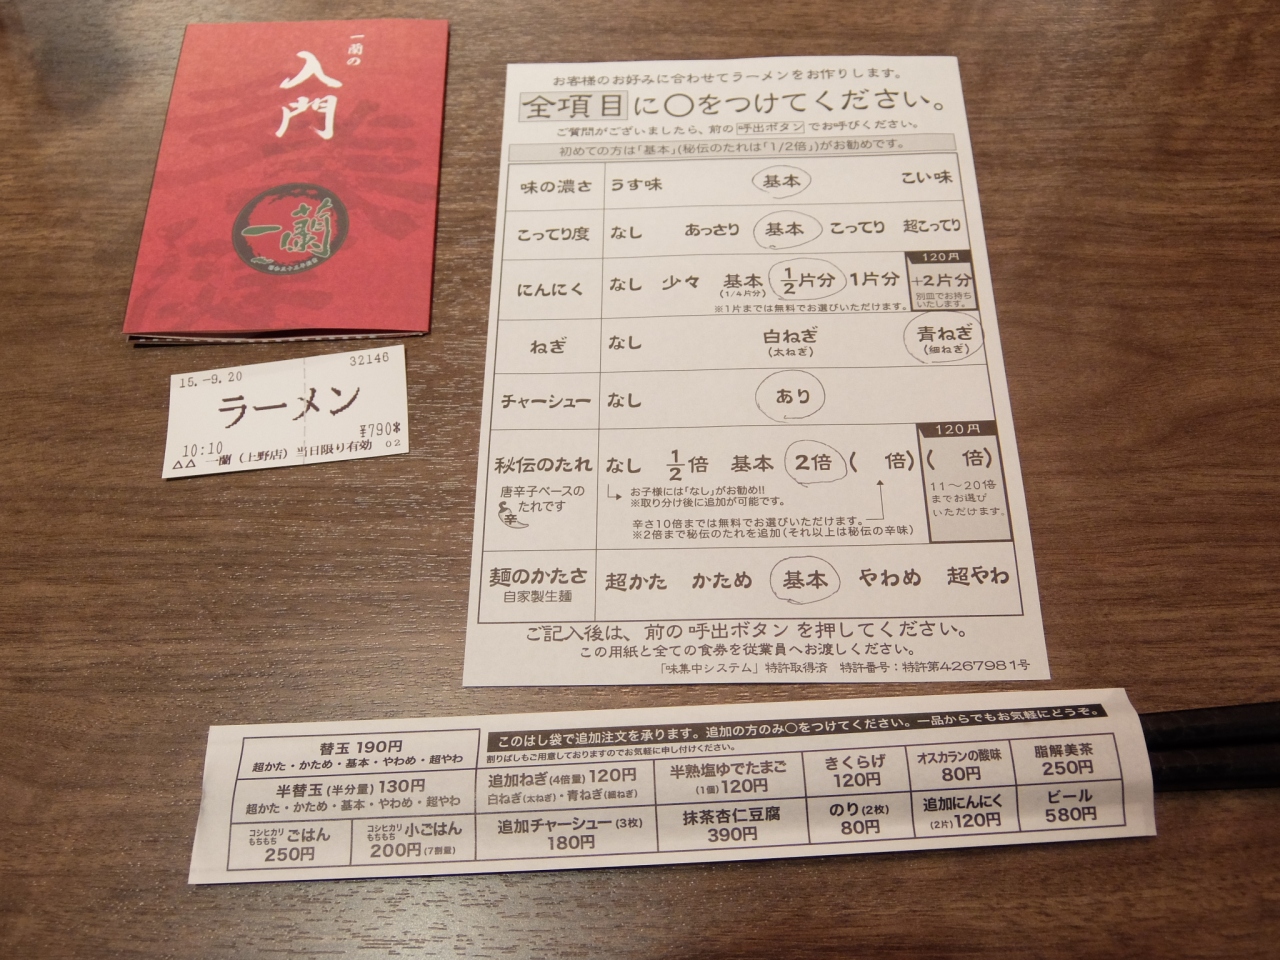 一蘭の
入門
一蘭
15.-9.20
32146
ラーメン
¥790*
10:10
02
△△ 一蘭（上野店）当日限り有効
お客様のお好みに合わせてラーメンをお作りします。
全項目に○をつけてください。
ご質問がございましたら、前の 呼出ボタン でお呼びください。
初めての方は「基本」(秘伝のたれは「1/2倍」)がお勧めです。
味の濃さ うす味 基本 こい味
こってり度 なし あっさり 基本 こってり 超こってり
120円
にんにく なし 少々 基本 1/2片分 1片分 +2片分
(1/4片分)
別皿でお持ちいたします。
※1片までは無料でお選びいただけます。
ねぎ なし 白ねぎ 青ねぎ
(太ねぎ) (細ねぎ)
チャーシュー なし あり
120円
秘伝のたれ なし 1/2倍 基本 2倍 ( 倍) ( 倍)
唐辛子ベースの
たれです
辛
お子様には「なし」がお勧め!!
※取り分け後に追加が可能です。
11～20倍
までお選び
いただけます。
辛さ10倍までは無料でお選びいただけます。
※2倍まで秘伝のたれを追加(それ以上は秘伝の辛味)
麺のかたさ 超かた かため 基本 やわめ 超やわ
自家製生麺
ご記入後は、前の 呼出ボタン を押してください。
この用紙と全ての食券を従業員へお渡しください。
「味集中システム」特許取得済 特許番号：特許第4267981号
このはし袋で追加注文を承ります。追加の方のみ○をつけてください。一品からでもお気軽にどうぞ。
割りばしもご用意しておりますのでお気軽に申し付けください。
替玉 190円
超かた・かため・基本・やわめ・超やわ
半替玉(半分量)130円
超かた・かため・基本・やわめ・超やわ
コシヒカリ もちもち ごはん
250円
コシヒカリ もちもち 小ごはん
200円(7割量)
追加ねぎ(4倍量)120円
白ねぎ(太ねぎ)・青ねぎ(細ねぎ)
追加チャーシュー(3枚)
180円
半熟塩ゆでたまご
(1個)120円
抹茶杏仁豆腐
390円
きくらげ
120円
のり(2枚)
80円
オスカランの酸味
80円
追加にんにく
(2片)120円
脂解美茶
250円
ビール
580円